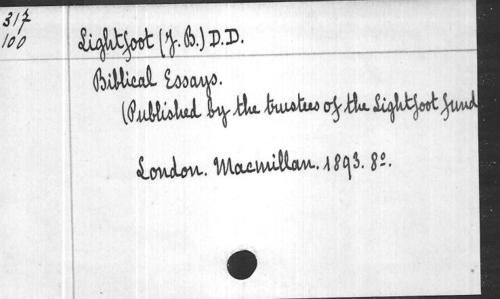 317
100
Lightfoot (J. B.) D. D.
Biblical Essays.
(Published by the trustees of the Lightfoot fund
London. Macmillan. 1893. 8º.